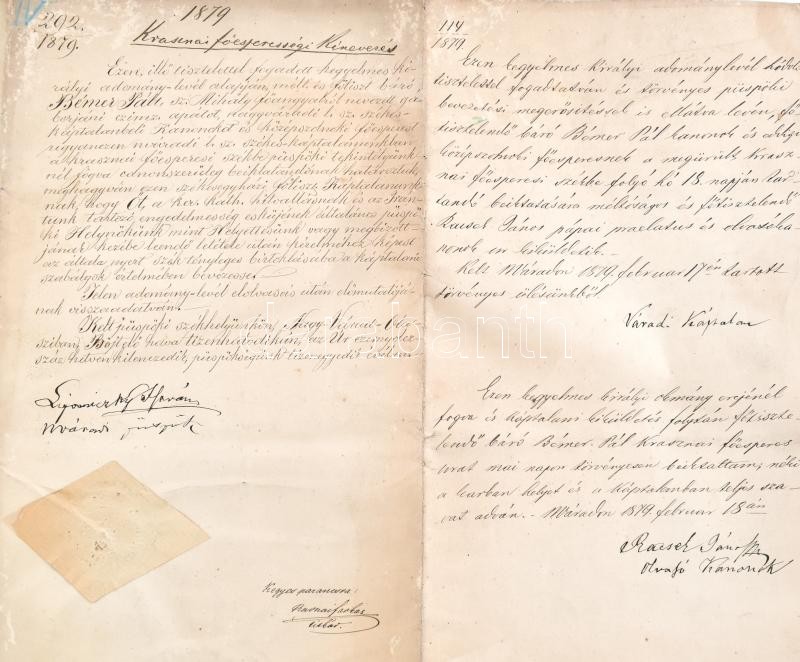 292.
1879.
1879
Krasznai főesperességi Kinevezés
Ezen, illő tisztelettel fogadott kegyelmes ki-
rályi adomány-levél alapján, mélt. és főtiszt. báró
Bémer Pált, sz. Mihály főangyalról nevezett ga-
borjáni czimz. apátot, nagyváradi l. sz. székes-
káptalanbeli Kanonokot és középszolnoki főesperest
ugyanezen nváradi l. sz. székes-káptalanunkban
a krasznai főesperesi székbe püspöki tekintélyünk-
nél fogva canonszerüleg beiktatandónak határoztuk,
meghagyván ezen székesegyházi főtiszt. Káptalanunk-
nak, hogy Őt, a ker. kath. hitvallásnak és az Irán-
tunk tartozó engedelmesség esküjének általános püspö-
ki Helynökünk mint Helyettesünk vagy megbizott-
jának kezébe leendő letétele után kérelméhez képest
az általa nyert szék tényleges birtoklásába a káptalani
szabályok értelmében bevezesse.
Jelen adomány-levél elolvasás után előmutatójá-
nak visszaadatván.
Kelt püspöki székhelyünkön, Nagy-Várad-Ola-
sziban, Böjtelő hava tizenhatodikán, az Úr ezernyolcz-
száz hetvenkilenczedik, püspökségünk tizenegyedik évében.
Lipovniczky István
Nváradi püspök
Kegyes parancsra:
titkár.
114
1879.
Ezen kegyelmes királyi adománylevél hódoló
tisztelettel fogadtatván és törvényes püspöki
bevezetési megerősitéssel is ellátva levén, fő-
tisztelendő báró Bémer Pál kanonok és eddigi
középszolnoki főesperesnek a megürült Krasz-
nai főesperesi székbe folyó hó 18. napján tar-
tandó beiktatására méltóságos és főtisztelendő
Racsek János pápai praelatus és olvasóka-
nonok úr kiküldetik.
Kelt Nváradon 1879. február 17én tartott
törvényes ülésünkből
Váradi Káptalan
Ezen kegyelmes királyi okmány erejénél
fogva és káptalani kiküldetés folytán főtiszte-
lendő báró Bémer Pál Krasznai főesperes
urat mai napon törvényesen beiktattam, néki
a karban helyet és a káptalanban teljes sza-
vat adván. - Nváradon 1879. február 18án
Racsek János
Olvasó Kanonok